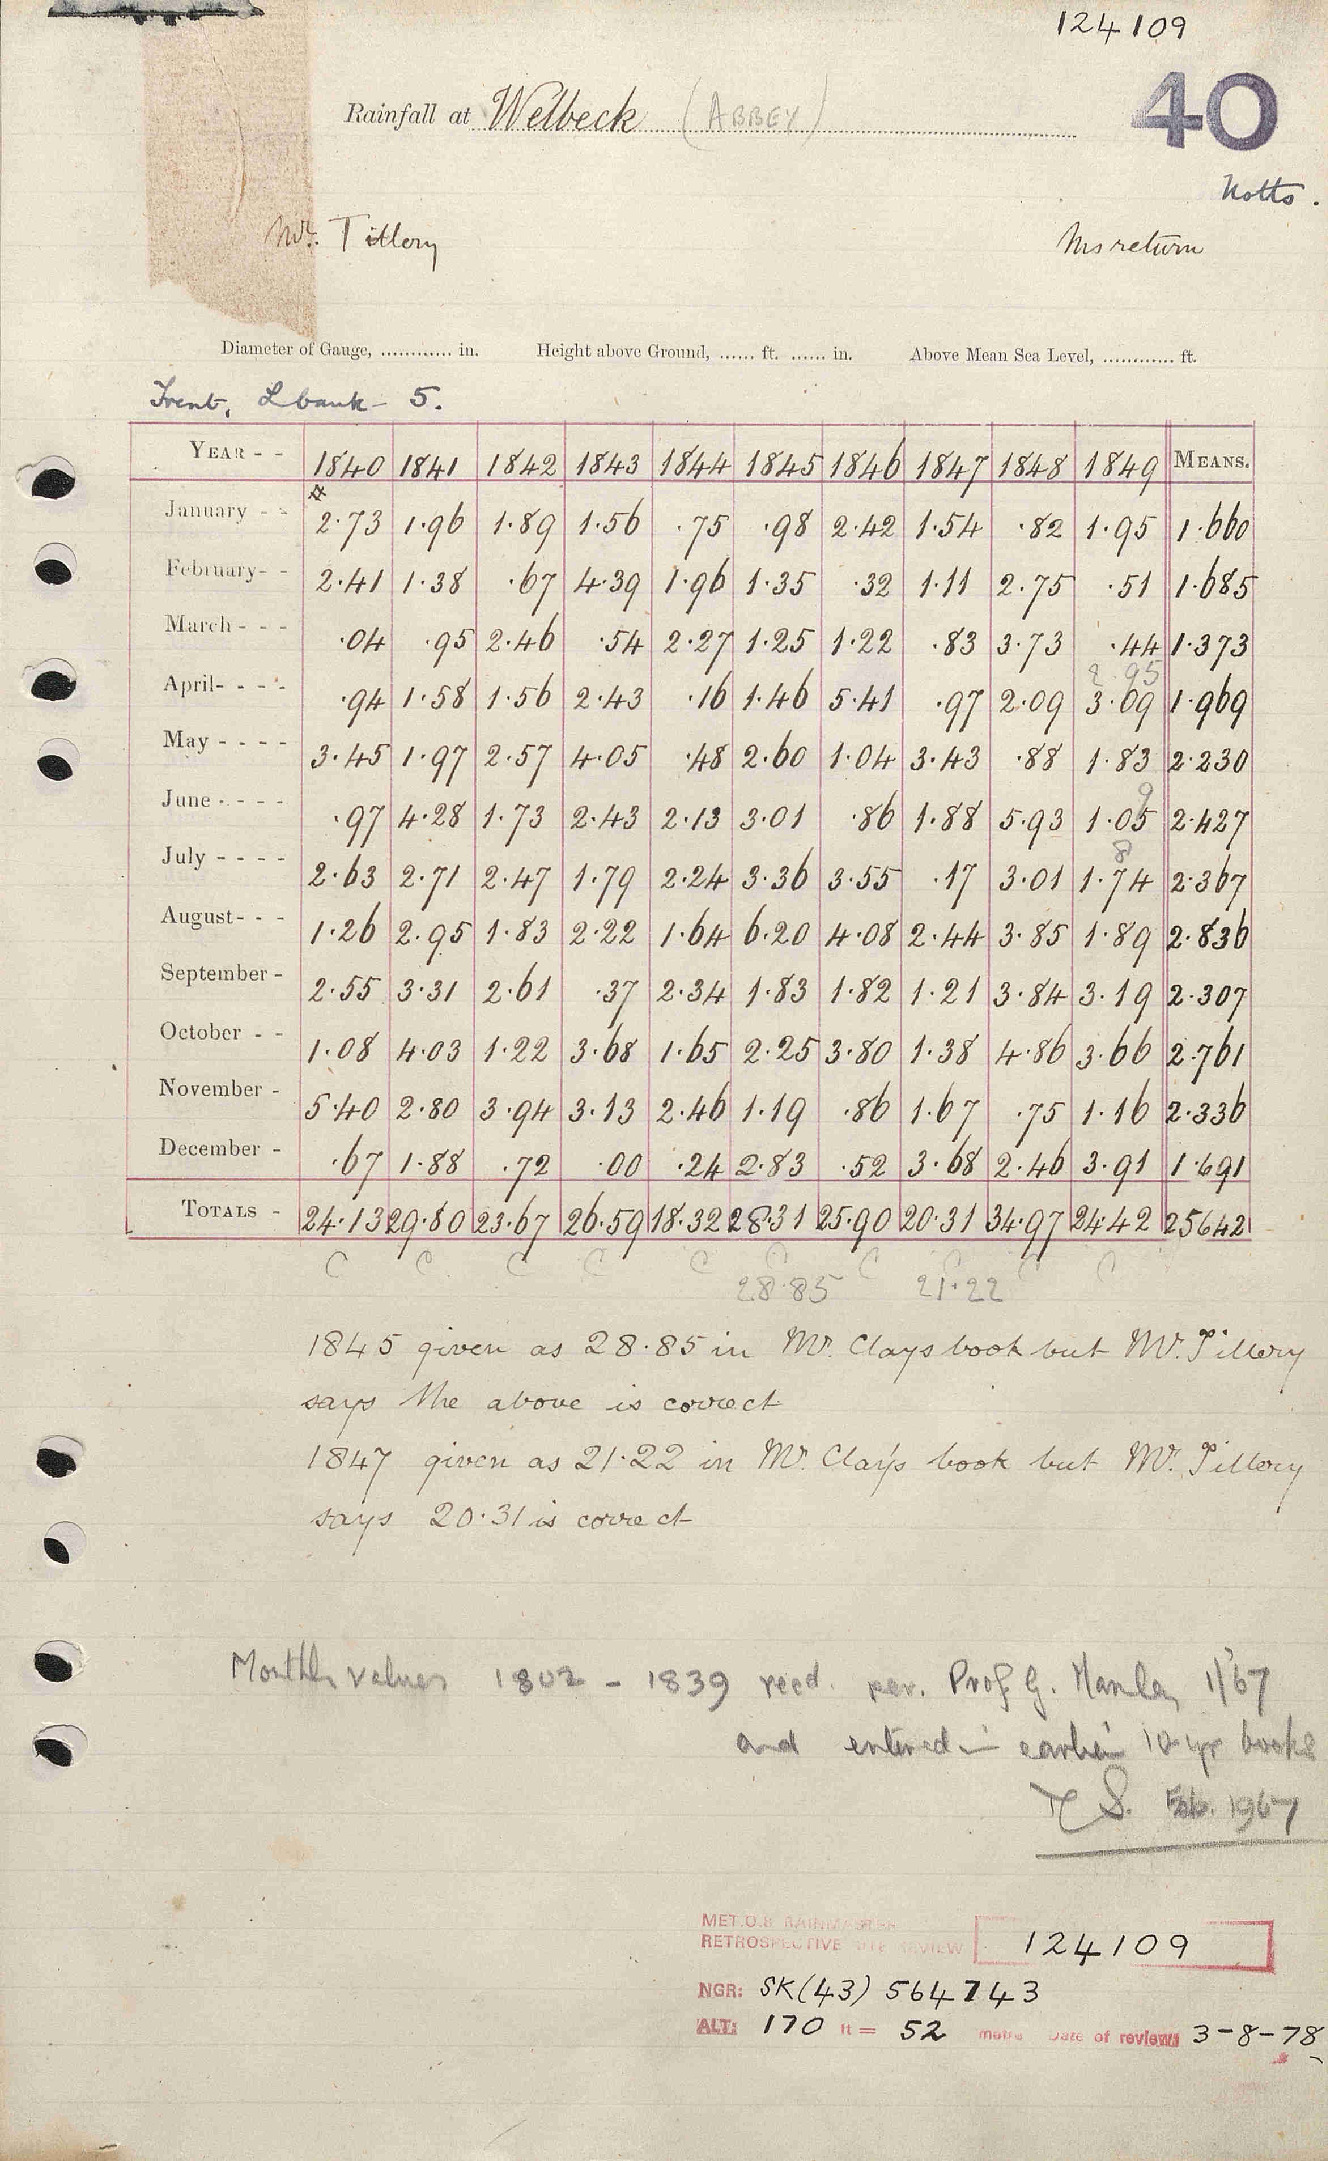 124109
40
Rainfall at Welbeck (ABBEY)
Notts.
Mr. Tillery Ms return
Diameter of Gauge, ............ in. Height above Ground, ...... ft. ...... in. Above Mean Sea Level, ............ ft.
Trent, L bank - 5.
YEAR - - 1840 1841 1842 1843 1844 1845 1846 1847 1848 1849 MEANS.
January - - 2.73 1.96 1.89 1.56 .75 .98 2.42 1.54 .82 1.95 1.660
February - - 2.41 1.38 .67 4.39 1.96 1.35 .32 1.11 2.75 .51 1.685
March - - - .04 .95 2.46 .54 2.27 1.25 1.22 .83 3.73 .44 1.373
2.95
April - - - - .94 1.58 1.56 2.43 .16 1.46 5.41 .97 2.09 3.09 1.969
May - - - - 3.45 1.97 2.57 4.05 .48 2.60 1.04 3.43 .88 1.83 2.230
9
June - - - - .97 4.28 1.73 2.43 2.13 3.01 .86 1.88 5.93 1.05 2.427
8
July - - - - 2.63 2.71 2.47 1.79 2.24 3.36 3.55 .17 3.01 1.74 2.367
August - - - 1.26 2.95 1.83 2.22 1.64 6.20 4.08 2.44 3.85 1.89 2.836
September - 2.55 3.31 2.61 .37 2.34 1.83 1.82 1.21 3.84 3.19 2.307
October - - 1.08 4.03 1.22 3.68 1.65 2.25 3.80 1.38 4.86 3.66 2.761
November - 5.40 2.80 3.94 3.13 2.46 1.19 .86 1.67 .75 1.16 2.336
December - .67 1.88 .72 .00 .24 2.83 .52 3.68 2.46 3.91 1.691
TOTALS - 24.13 29.80 23.67 26.59 18.32 28.31 25.90 20.31 34.97 24.42 25642
C C C C C C C C C C
28.85 21.22
1845 given as 28.85 in Mr. Clays book but Mr. Tillery
says the above is correct
1847 given as 21.22 in Mr. Clay's book but Mr. Tillery
says 20.31 is correct
Monthly values 1802 - 1839 recd. per. Prof G. Manley 1/'67
and entered in earlier 10 yr books
S. Feb. 1967
MET.O.8 RAINMASTER
RETROSPECTIVE SITE REVIEW 124109
NGR: SK(43) 564743
ALT: 170 ft = 52 metre Date of review 3-8-78